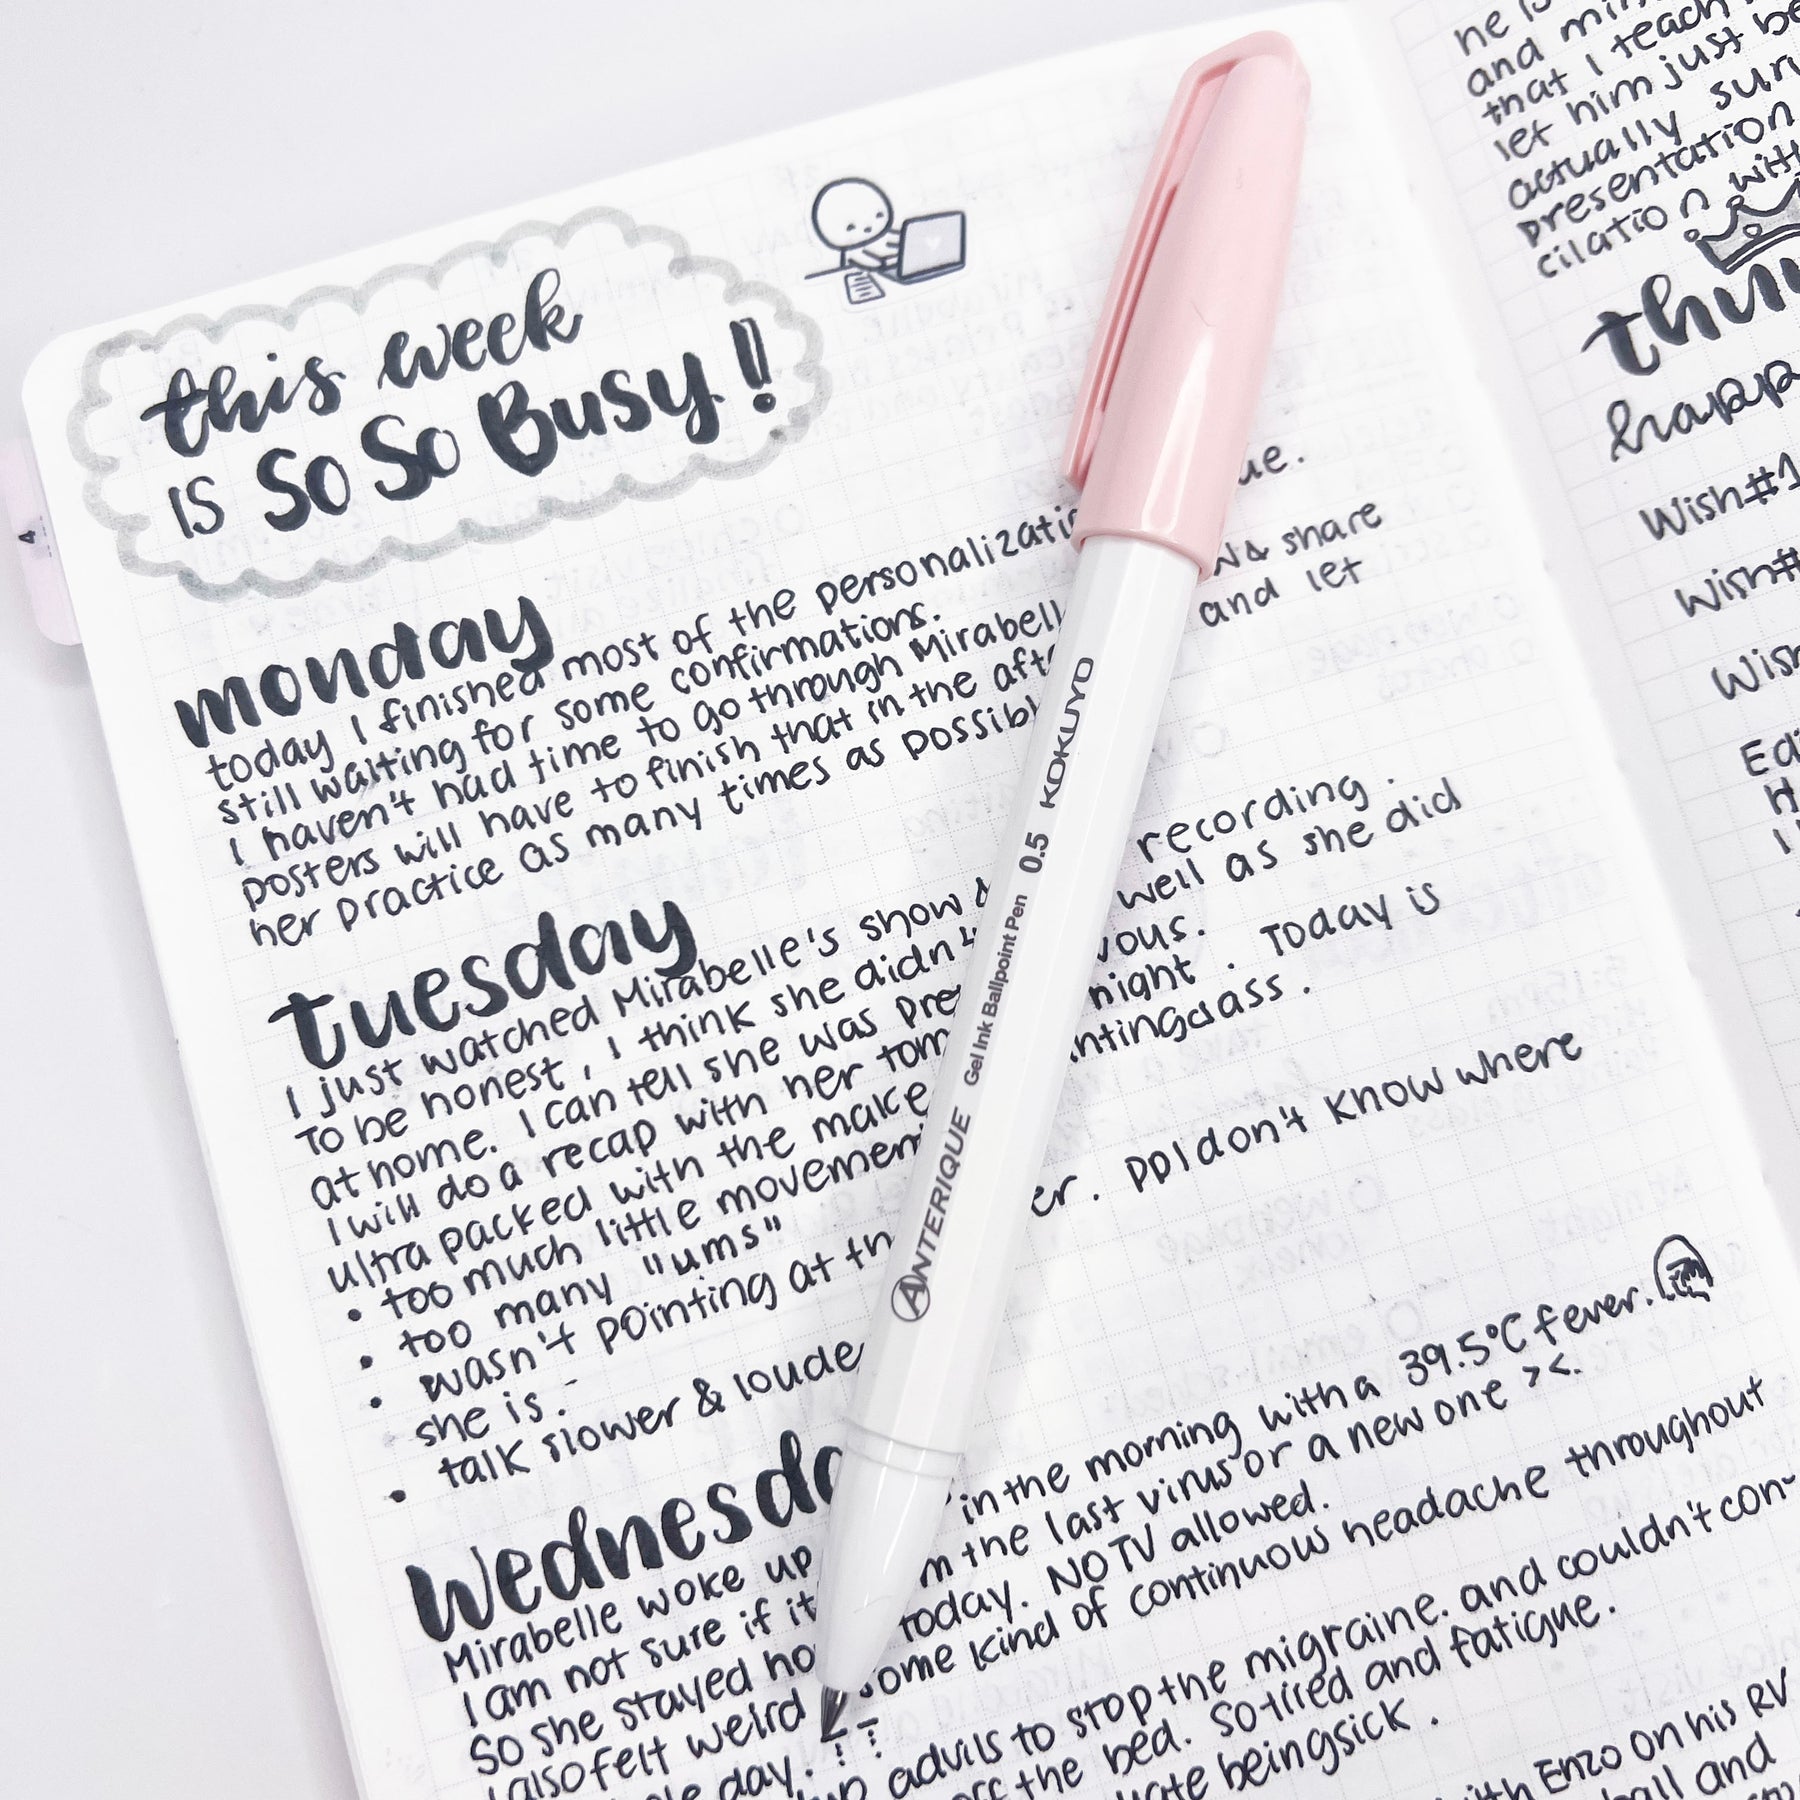 this week
is So So Busy!!
monday
today I finished most of the personalizati ue.
still waiting for some confirmations.
I haven't had time to go through Mirabell & share
posters will have to finish that in the aft and let
her practice as many times as possibl
tuesday
I just watched Mirabelle's show & recording.
To be honest, I think she didn't well as she did
at home. I can tell she was pre vous.
I will do a recap with her tom night. Today is
ultra packed with the make intingclass.
• too much little movement
• too many "ums"
• wasn't pointing at th er. ppl don't know where
she is.
• talk slower & loude
Wednesda
Mirabelle woke up in the morning with a 39.5°C fever.
I am not sure if it m the last virus or a new one ><.
So she stayed ho today. NO TV allowed.
I also felt weird some kind of continuous headache throughout
ole day.
up advils to stop the migraine. and couldn't con-
off the bed. So tired and fatigue.
hate being sick.
with Enzo on his RV
ball and
KOKUYO
0.5
Gel Ink Ballpoint Pen
ANTERIQUE
4
he is
and min
that I teach
let him just be
actually surv
presentation
cilation with
thur
happ
Wish #1
Wish #
Wish
Ed
H
I